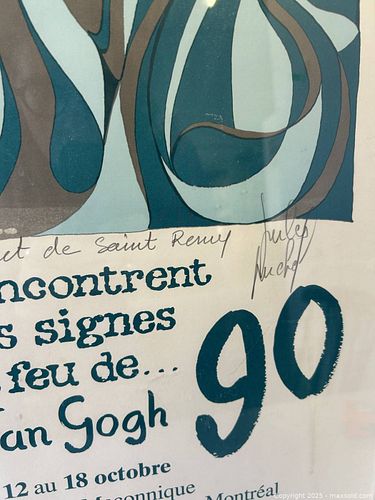 et de Saint Remy
Jules
ncontrent
s signes
feu de...
an Gogh
90
12 au 18 octobre
Maçonnique Montréal
copyright 2025 - maxsold.com